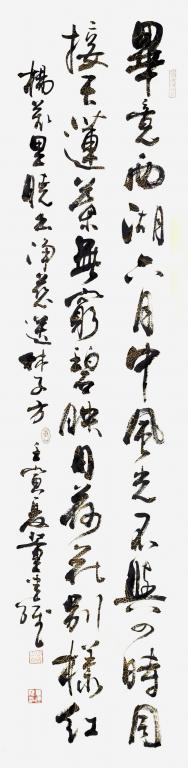 畢竟西湖六月中風光不與四時同
接天蓮葉無窮碧映日荷花別樣紅
楊萬里曉出淨慈送林子方
壬寅夏